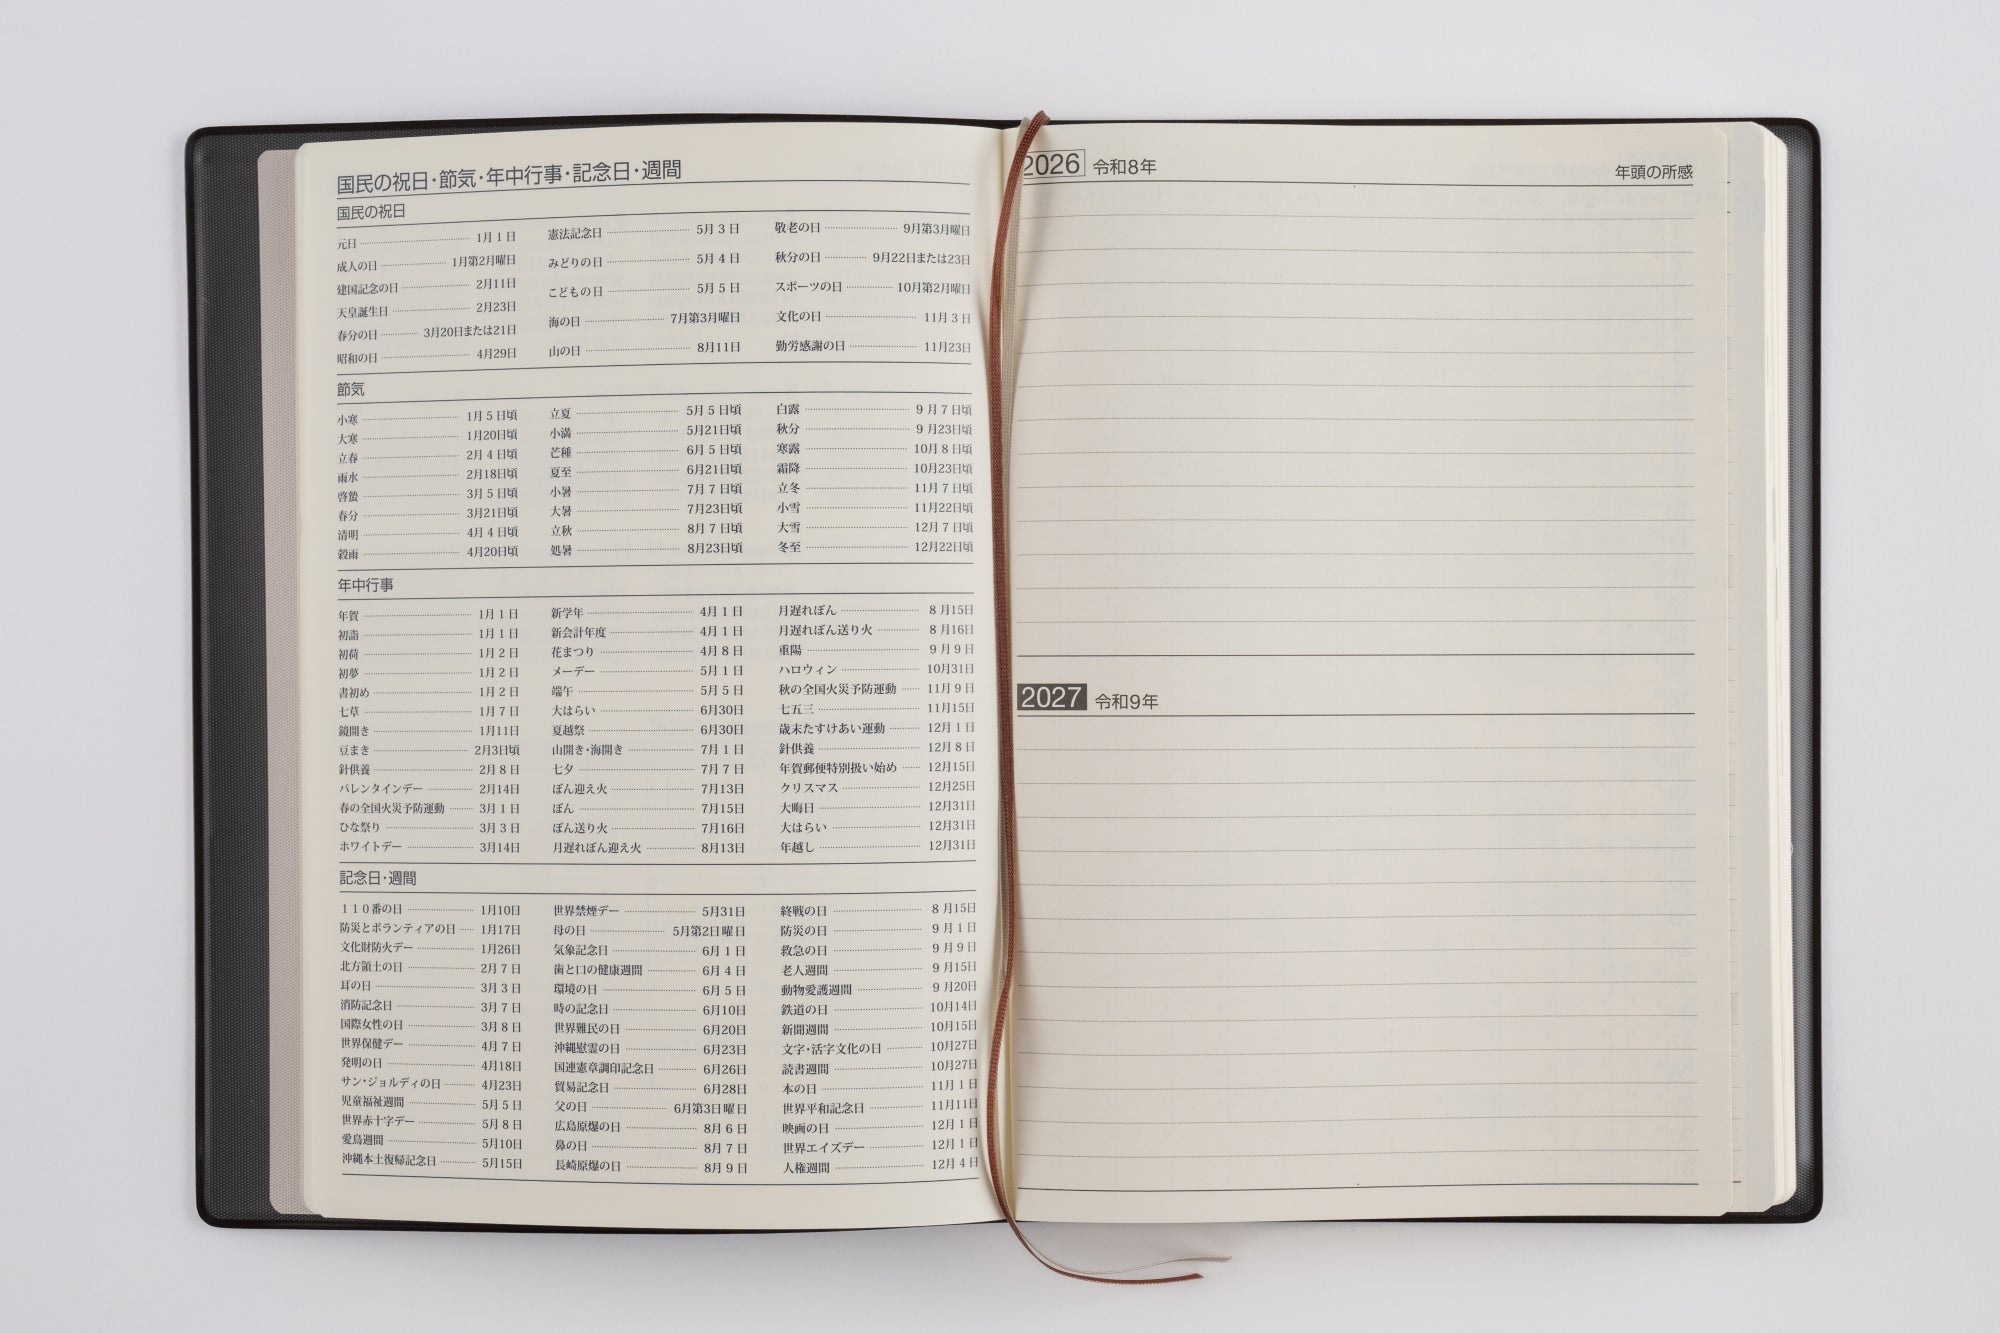 国民の祝日・節気・年中行事・記念日・週間
国民の祝日
元日 1月1日
成人の日 1月第2月曜日
建国記念の日 2月11日
天皇誕生日 2月23日
春分の日 3月20日または21日
昭和の日 4月29日
憲法記念日 5月3日
みどりの日 5月4日
こどもの日 5月5日
海の日 7月第3月曜日
山の日 8月11日
敬老の日 9月第3月曜日
秋分の日 9月22日または23日
スポーツの日 10月第2月曜日
文化の日 11月3日
勤労感謝の日 11月23日
節気
小寒 1月5日頃
大寒 1月20日頃
立春 2月4日頃
雨水 2月18日頃
啓蟄 3月5日頃
春分 3月21日頃
清明 4月4日頃
穀雨 4月20日頃
立夏 5月5日頃
小満 5月21日頃
芒種 6月5日頃
夏至 6月21日頃
小暑 7月7日頃
大暑 7月23日頃
立秋 8月7日頃
処暑 8月23日頃
白露 9月7日頃
秋分 9月23日頃
寒露 10月8日頃
霜降 10月23日頃
立冬 11月7日頃
小雪 11月22日頃
大雪 12月7日頃
冬至 12月22日頃
年中行事
年賀 1月1日
初詣 1月1日
初荷 1月2日
初夢 1月2日
書初め 1月2日
七草 1月7日
鏡開き 1月11日
豆まき 2月3日頃
針供養 2月8日
バレンタインデー 2月14日
春の全国火災予防運動 3月1日
ひな祭り 3月3日
ホワイトデー 3月14日
新学年 4月1日
新会計年度 4月1日
花まつり 4月8日
メーデー 5月1日
端午 5月5日
大はらい 6月30日
夏越祭 6月30日
山開き・海開き 7月1日
七夕 7月7日
ぼん迎え火 7月13日
ぼん 7月15日
ぼん送り火 7月16日
月遅れぼん迎え火 8月13日
月遅れぼん 8月15日
月遅れぼん送り火 8月16日
重陽 9月9日
ハロウィン 10月31日
秋の全国火災予防運動 11月9日
七五三 11月15日
歳末たすけあい運動 12月1日
針供養 12月8日
年賀郵便特別扱い始め 12月15日
クリスマス 12月25日
大晦日 12月31日
大はらい 12月31日
年越し 12月31日
記念日・週間
110番の日 1月10日
防災とボランティアの日 1月17日
文化財防火デー 1月26日
北方領土の日 2月7日
耳の日 3月3日
消防記念日 3月7日
国際女性の日 3月8日
世界保健デー 4月7日
発明の日 4月18日
サン・ジョルディの日 4月23日
児童福祉週間 5月5日
世界赤十字デー 5月8日
愛鳥週間 5月10日
沖縄本土復帰記念日 5月15日
世界禁煙デー 5月31日
母の日 5月第2日曜日
気象記念日 6月1日
歯と口の健康週間 6月4日
環境の日 6月5日
時の記念日 6月10日
世界難民の日 6月20日
沖縄慰霊の日 6月23日
国連憲章調印記念日 6月26日
貿易記念日 6月28日
父の日 6月第3日曜日
広島原爆の日 8月6日
鼻の日 8月7日
長崎原爆の日 8月9日
終戦の日 8月15日
防災の日 9月1日
救急の日 9月9日
老人週間 9月15日
動物愛護週間 9月20日
鉄道の日 10月14日
新聞週間 10月15日
文字・活字文化の日 10月27日
読書週間 10月27日
本の日 11月1日
世界平和記念日 11月11日
映画の日 12月1日
世界エイズデー 12月1日
人権週間 12月4日
2026 令和8年
年頭の所感
2027 令和9年